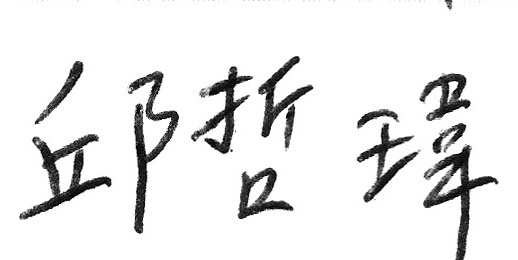 邱哲瑋